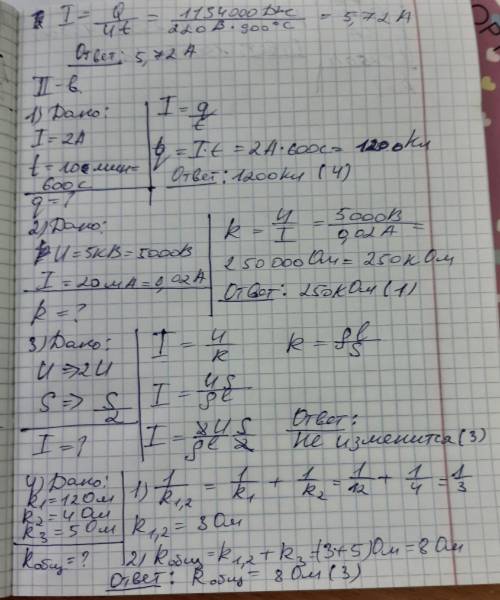 I = Q/Ut = 1134000 Дж/220В·900°С = 5,72 А
Ответ: 5,72 А
II-в.
1) Дано:
I = 2А
t = 10 мин =
600с
q = ?
I = q/t
q = It = 2А·600с = 1200Кл
Ответ: 1200Кл (4)
2) Дано:
U = 5кВ = 5000В
I = 20мА = 0,02А
R = ?
R = U/I = 5000В/0,02А =
250000 Ом = 250кОм
Ответ: 250кОм (1)
3) Дано:
U => 2U
S => S/2
I = ?
I = U/R R = ρl/S
I = US/ρl
I = 2US/ρl2
Ответ:
Не изменится (3)
4) Дано:
R₁ = 12Ом
R₂ = 4 Ом
R₃ = 5 Ом
Rобщ = ?
1) 1/R₁,₂ = 1/R₁ + 1/R₂ = 1/12 + 1/4 = 1/3
R₁,₂ = 3 Ом
2) Rобщ = R₁,₂ + R₃ = (3+5) Ом = 8 Ом
Ответ: Rобщ = 8 Ом (3)